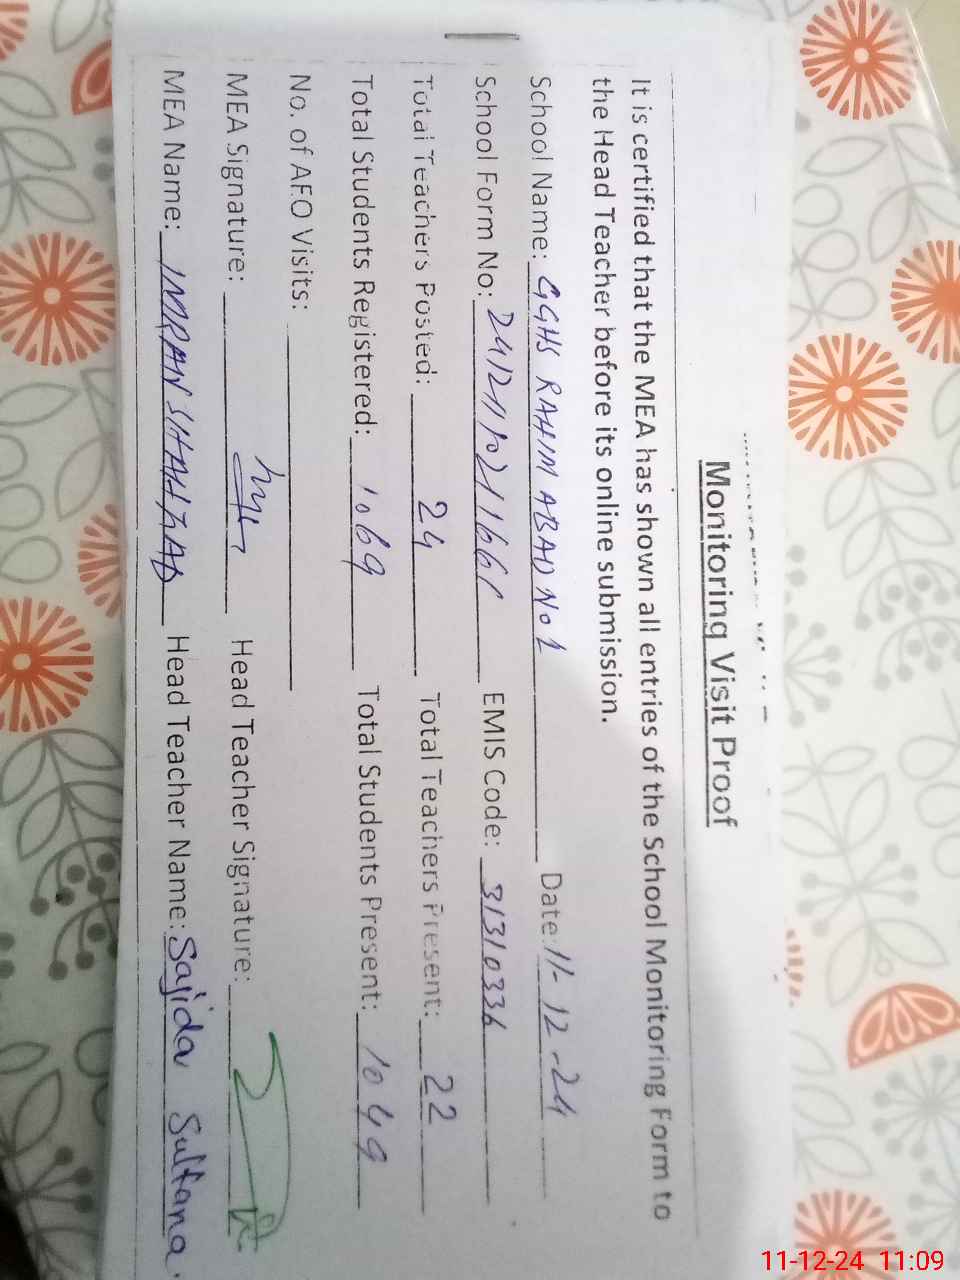 Monitoring Visit Proof
It is certified that the MEA has shown all entries of the School Monitoring Form to
the Head Teacher before its online submission.
School Name: GGHS RAHIM ABAD No 1 Date: 11-12-24
School Form No: EMIS Code: 31310336
Total Teachers Posted: 24 Total Teachers Present: 22
Total Students Registered: 1069 Total Students Present: 1049
No. of AEO Visits:
MEA Signature: Head Teacher Signature:
MEA Name: IMRAN SHAHZAD Head Teacher Name: Sajida Sultana.
11-12-24 11:09